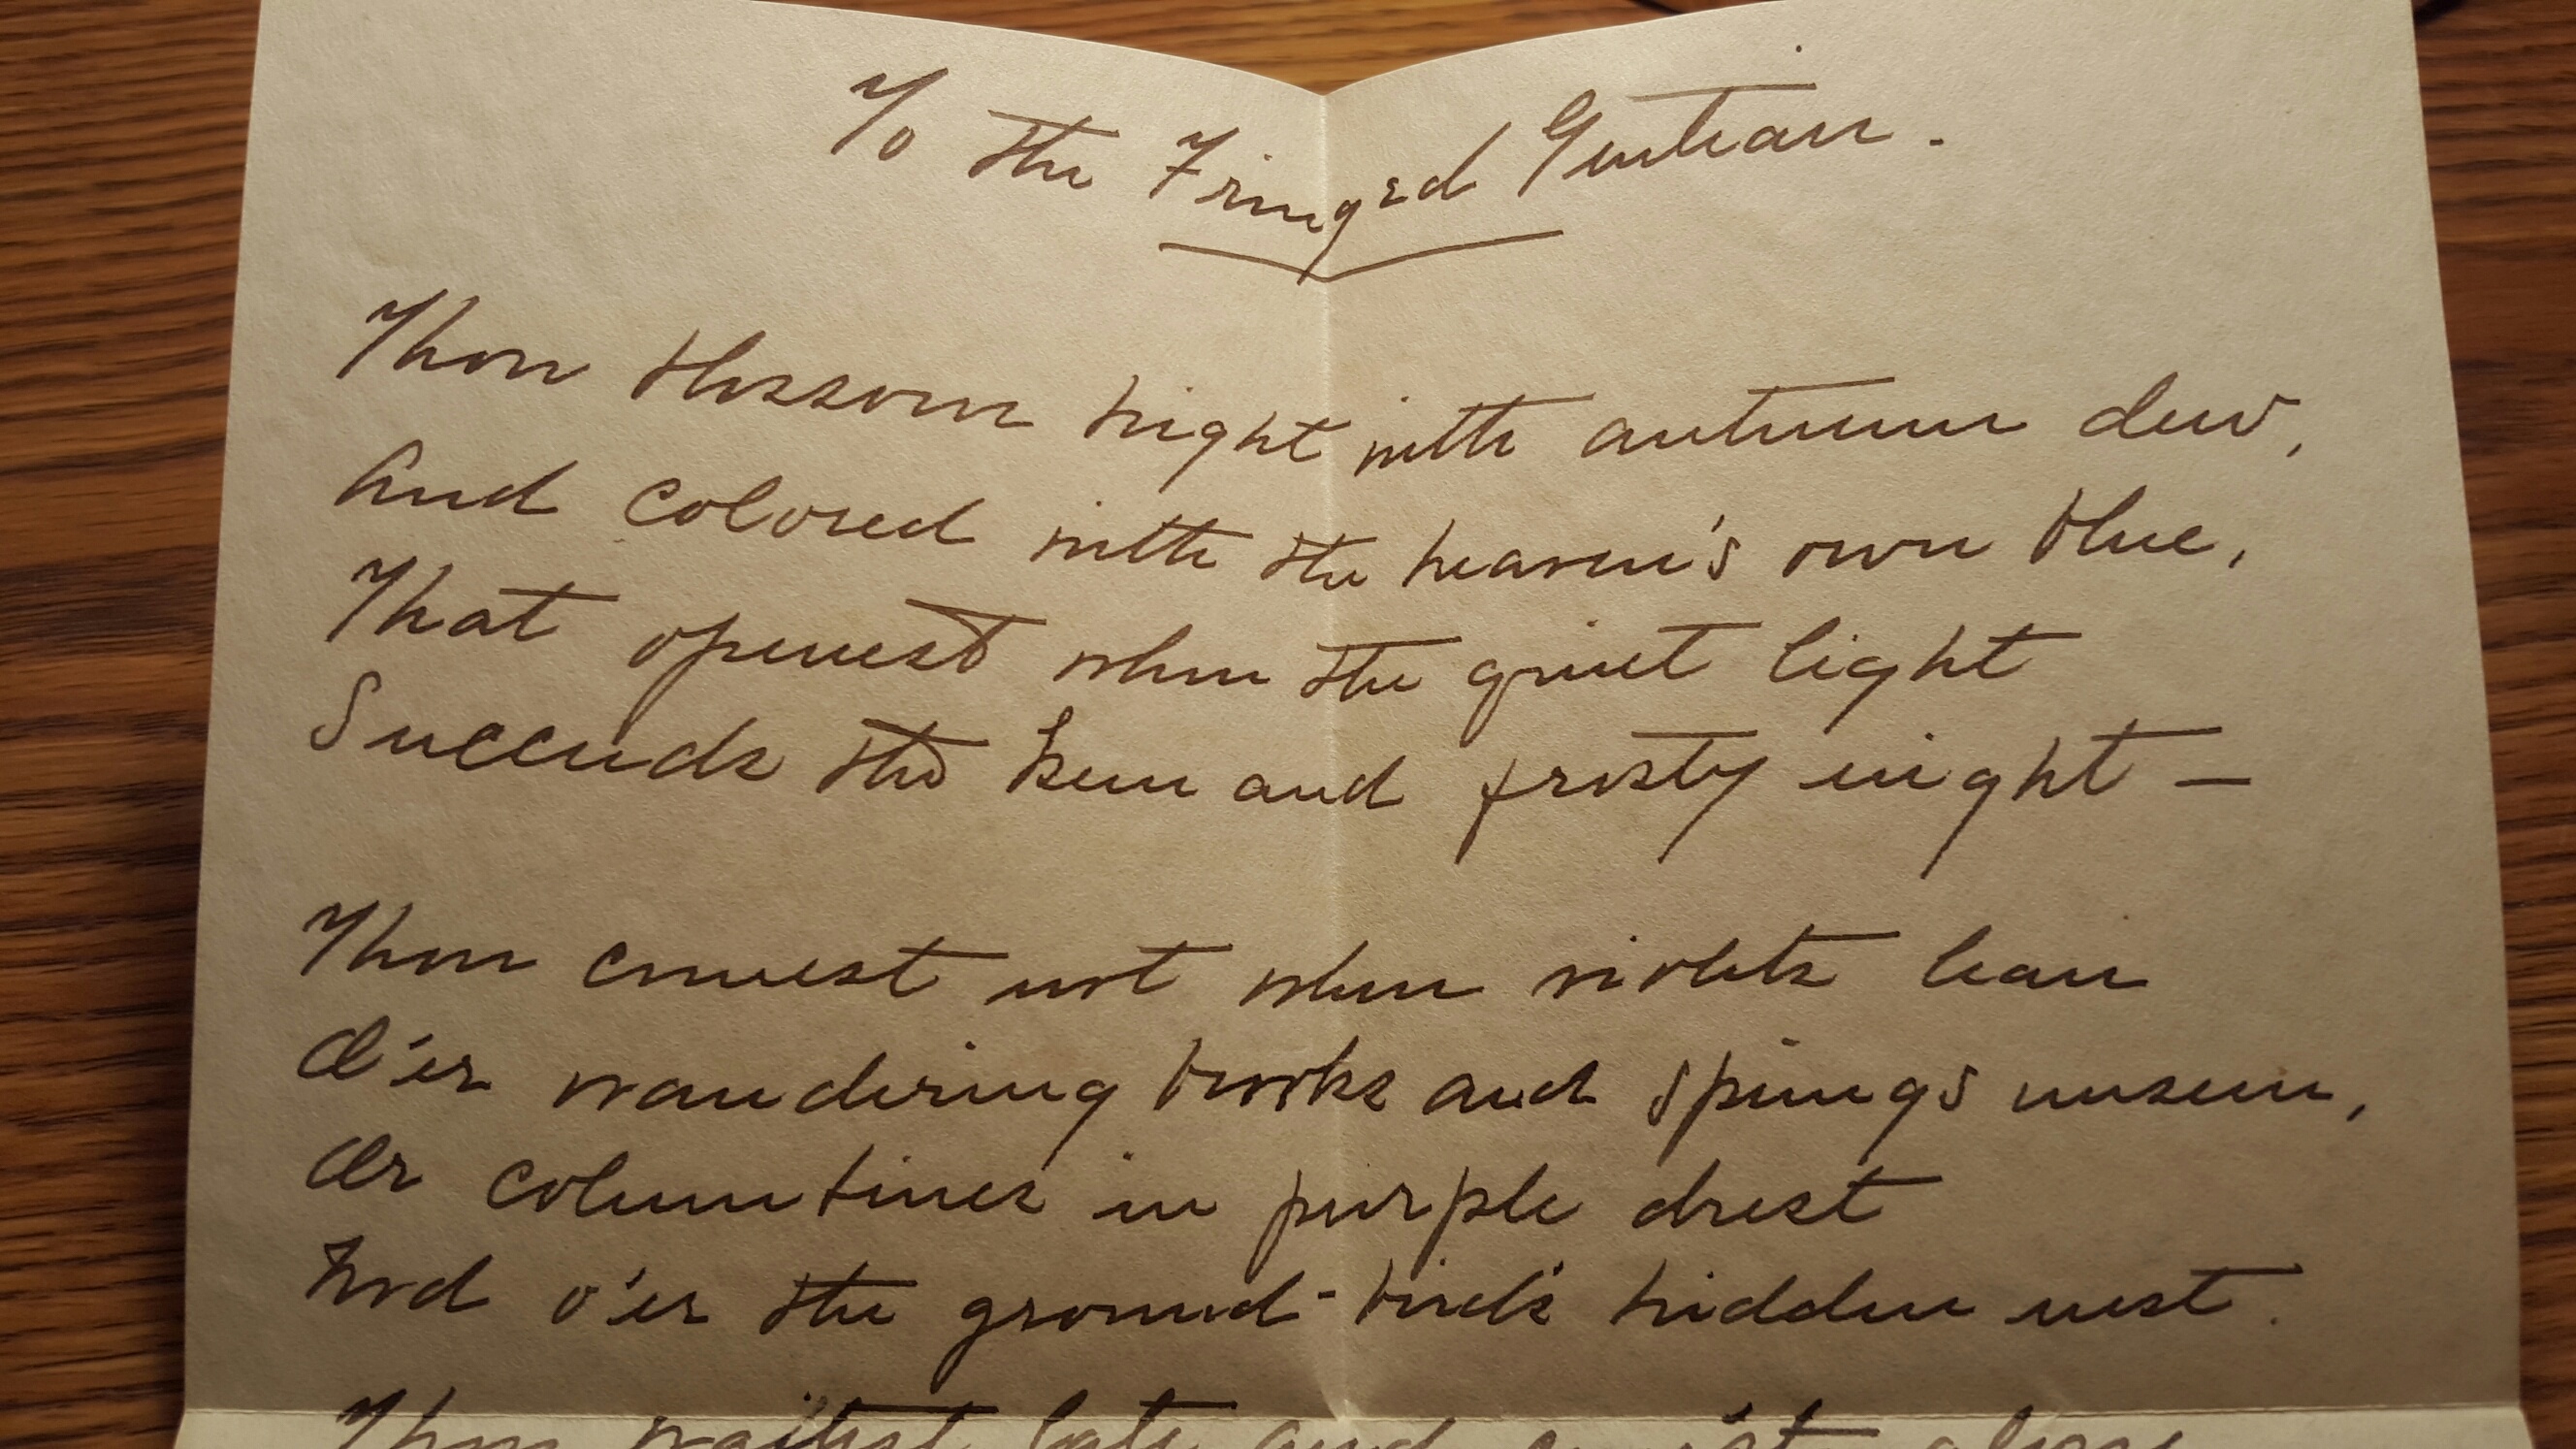 To the Fringed Gentian.
Thou blossom bright with autumn dew,
And colored with the heaven's own blue,
That openest when the quiet light
Succeeds the keen and frosty night —
Thou comest not when violets lean
O'er wandering brooks and springs unseen,
Or columbines in purple drest
Nod o'er the ground-bird's hidden nest.
Thou waitest late and com'st alone